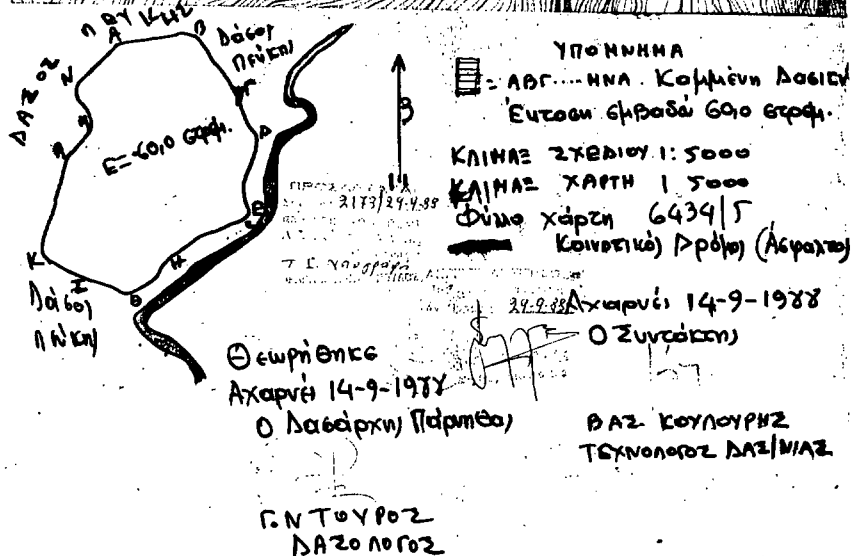 ΔΑΣΟΣ ΠΕΥΚΗΣ
Α Β
Δάσος
Πεύκης
Ν
Γ
Μ
Δ
Λ
Ε=60,0 στρεμ.
Ε
Κ
Ι
Θ
Η
Δάσος
Πεύκης
ΥΠΟΜΝΗΜΑ
= ΑΒΓ....ΗΝΑ. Καμμένη Δασική
Έκταση εμβαδά 60,0 στρέμ.
ΚΛΙΜΑΞ ΣΧΕΔΙΟΥ 1:5000
ΚΛΙΜΑΞ ΧΑΡΤΗ 1 5000
Φύλλο χάρτη 6434/5
Κοινοτικός Δρόμος (Άσφαλτος)
2173/29-9-88
29-9-88
Αχαρνές 14-9-1988
Ο Συντάκτης
ΒΑΣ. ΚΟΥΛΟΥΡΗΣ
ΤΕΧΝΟΛΟΓΟΣ ΔΑΣ/ΝΙΑΣ
Θεωρήθηκε
Αχαρνές 14-9-1988
Ο Δασάρχης Πάρνηθας
Γ. ΝΤΟΥΡΟΣ
ΔΑΣΟΛΟΓΟΣ